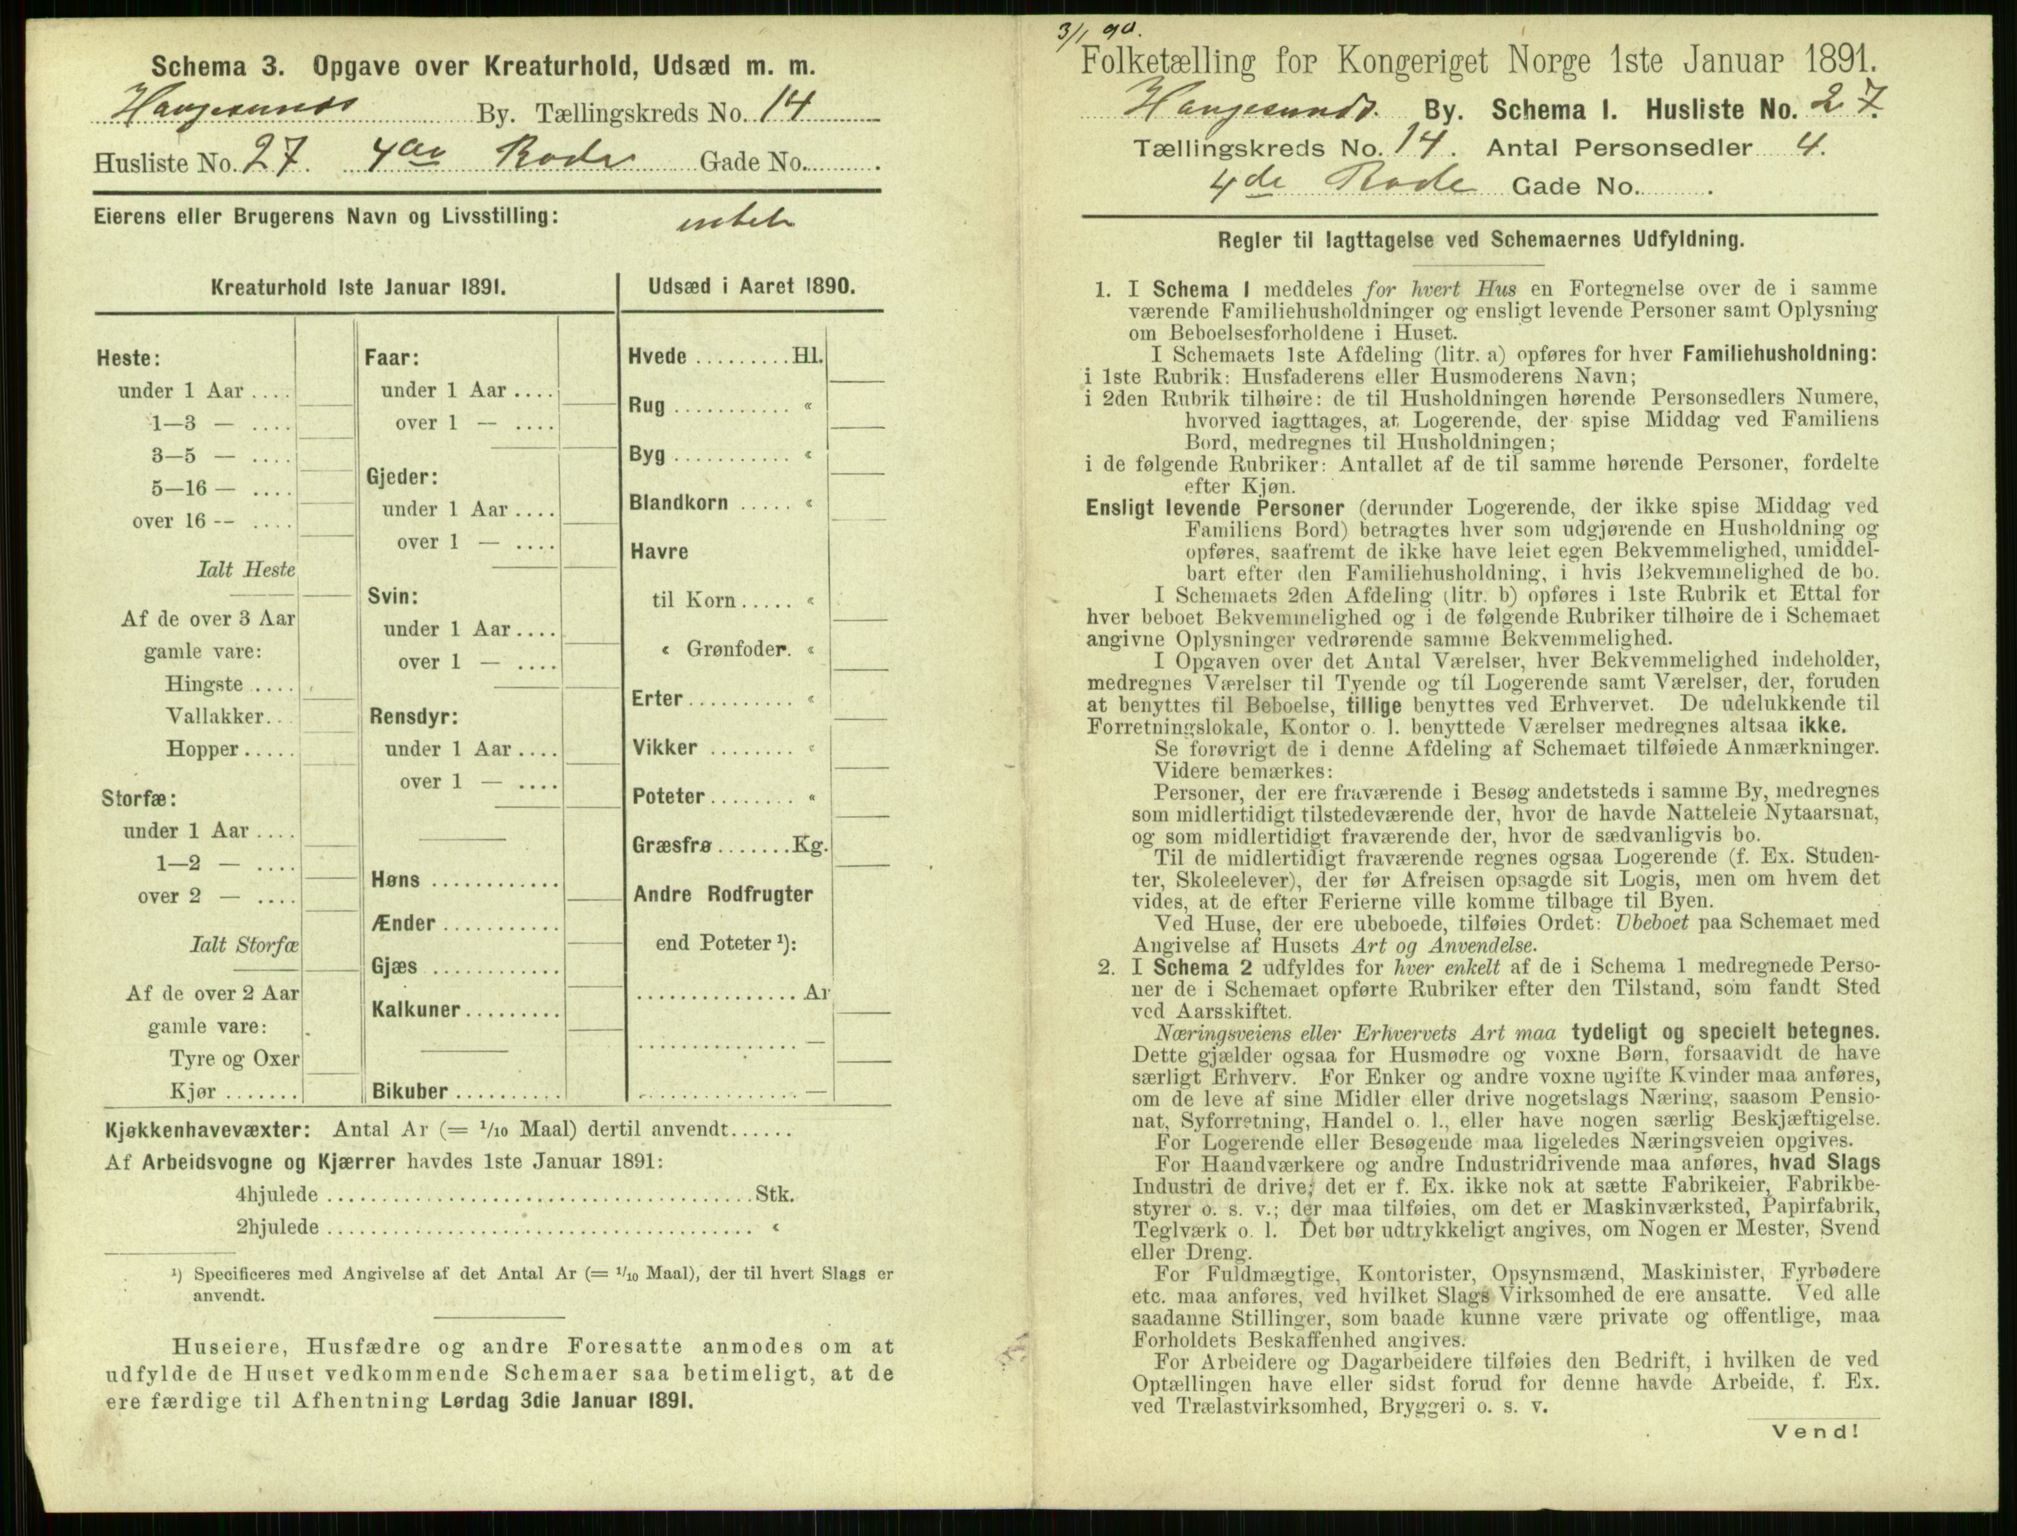 Schema 3. Opgave over Kreaturhold, Udsæd m. m.
Haugesunds By. Tællingskreds No. 14
Husliste No. 27. 4de Rode Gade No. .
Eierens eller Brugerens Navn og Livsstilling:
Kreaturhold 1ste Januar 1891.
Heste:
under 1 Aar ....
1—3 — ....
3—5 — ....
5—16 — ....
over 16 -- ....
Ialt Heste
Af de over 3 Aar
gamle vare:
Hingste ....
Vallakker..
Hopper .....
Storfæ:
under 1 Aar ....
1—2 — ....
over 2 — ....
Ialt Storfæ
Af de over 2 Aar
gamle vare:
Tyre og Oxer
Kjør .......
Faar:
under 1 Aar ....
over 1 — ....
Gjeder:
under 1 Aar ....
over 1 — ....
Svin:
under 1 Aar ....
over 1 — ....
Rensdyr:
under 1 Aar ....
over 1 — ....
Høns ............
Ænder ...........
Gjæs ............
Kalkuner.........
Bikuber ..........
Udsæd i Aaret 1890.
Hvede .........Hl.
Rug ........... «
Byg ........... «
Blandkorn ..... «
Havre
til Korn..... «
« Grønfoder. «
Erter.......... «
Vikker ........ «
Poteter........ «
Græsfrø .......Kg.
Andre Rodfrugter
end Poteter ¹):
............... Ar
............... —
............... —
Kjøkkenhavevæxter: Antal Ar (= 1/10 Maal) dertil anvendt......
Af Arbeidsvogne og Kjærrer havdes 1ste Januar 1891:
4hjulede ........................................Stk.
2hjulede ........................................ «
¹) Specificeres med Angivelse af det Antal Ar (= 1/10 Maal), der til hvert Slags er
anvendt.
Huseiere, Husfædre og andre Foresatte anmodes om at
udfylde de Huset vedkommende Schemaer saa betimeligt, at de
ere færdige til Afhentning Lørdag 3die Januar 1891.
3/1 90.
Folketælling for Kongeriget Norge 1ste Januar 1891.
Haugesunds. By. Schema I. Husliste No. 27.
Tællingskreds No. 14. Antal Personsedler 4.
4de Rode Gade No. .
Regler til Iagttagelse ved Schemaernes Udfyldning.
1. I Schema 1 meddeles for hvert Hus en Fortegnelse over de i samme
værende Familiehusholdninger og ensligt levende Personer samt Oplysning
om Beboelsesforholdene i Huset.
I Schemaets 1ste Afdeling (litr. a) opføres for hver Familiehusholdning:
i 1ste Rubrik: Husfaderens eller Husmoderens Navn;
i 2den Rubrik tilhøire: de til Husholdningen hørende Personsedlers Numere,
hvorved iagttages, at Logerende, der spise Middag ved Familiens
Bord, medregnes til Husholdningen;
i de følgende Rubriker: Antallet af de til samme hørende Personer, fordelte
efter Kjøn.
Ensligt levende Personer (derunder Logerende, der ikke spise Middag ved
Familiens Bord) betragtes hver som udgjørende en Husholdning og
opføres, saafremt de ikke have leiet egen Bekvemmelighed, umiddel-
bart efter den Familiehusholdning, i hvis Bekvemmelighed de bo.
I Schemaets 2den Afdeling (litr. b) opføres i 1ste Rubrik et Ettal for
hver beboet Bekvemmelighed og i de følgende Rubriker tilhøire de i Schemaet
angivne Oplysninger vedrørende samme Bekvemmelighed.
I Opgaven over det Antal Værelser, hver Bekvemmelighed indeholder,
medregnes Værelser til Tyende og til Logerende samt Værelser, der, foruden
at benyttes til Beboelse, tillige benyttes ved Erhvervet. De udelukkende til
Forretningslokale, Kontor o. l. benyttede Værelser medregnes altsaa ikke.
Se forøvrigt de i denne Afdeling af Schemaet tilføiede Anmærkninger.
Videre bemærkes:
Personer, der ere fraværende i Besøg andetsteds i samme By, medregnes
som midlertidigt tilstedeværende der, hvor de havde Natteleie Nytaarsnat,
og som midlertidigt fraværende der, hvor de sædvanligvis bo.
Til de midlertidigt fraværende regnes ogsaa Logerende (f. Ex. Studen-
ter, Skoleelever), der før Afreisen opsagde sit Logis, men om hvem det
vides, at de efter Ferierne ville komme tilbage til Byen.
Ved Huse, der ere ubeboede, tilføies Ordet: Ubeboet paa Schemaet med
Angivelse af Husets Art og Anvendelse.
2. I Schema 2 udfyldes for hver enkelt af de i Schema 1 medregnede Perso-
ner de i Schemaet opførte Rubriker efter den Tilstand, som fandt Sted
ved Aarsskiftet.
Næringsveiens eller Erhvervets Art maa tydeligt og specielt betegnes.
Dette gjælder ogsaa for Husmødre og voxne Børn, forsaavidt de have
særligt Erhverv. For Enker og andre voxne ugifte Kvinder maa anføres,
om de leve af sine Midler eller drive nogetslags Næring, saasom Pensio-
nat, Syforretning, Handel o. l., eller have nogen særlig Beskjæftigelse.
For Logerende eller Besøgende maa ligeledes Næringsveien opgives.
For Haandværkere og andre Industridrivende maa anføres, hvad Slags
Industri de drive; det er f. Ex. ikke nok at sætte Fabrikeier, Fabrikbe-
styrer o. s. v.; der maa tilføies, om det er Maskinværksted, Papirfabrik,
Teglværk o. l. Det bør udtrykkeligt angives, om Nogen er Mester, Svend
eller Dreng.
For Fuldmægtige, Kontorister, Opsynsmænd, Maskinister, Fyrbødere
etc. maa anføres, ved hvilket Slags Virksomhed de ere ansatte. Ved alle
saadanne Stillinger, som baade kunne være private og offentlige, maa
Forholdets Beskaffenhed angives.
For Arbeidere og Dagarbeidere tilføies den Bedrift, i hvilken de ved
Optællingen have eller sidst forud for denne havde Arbeide, f. Ex.
ved Trælastvirksomhed, Bryggeri o. s. v.
Vend!